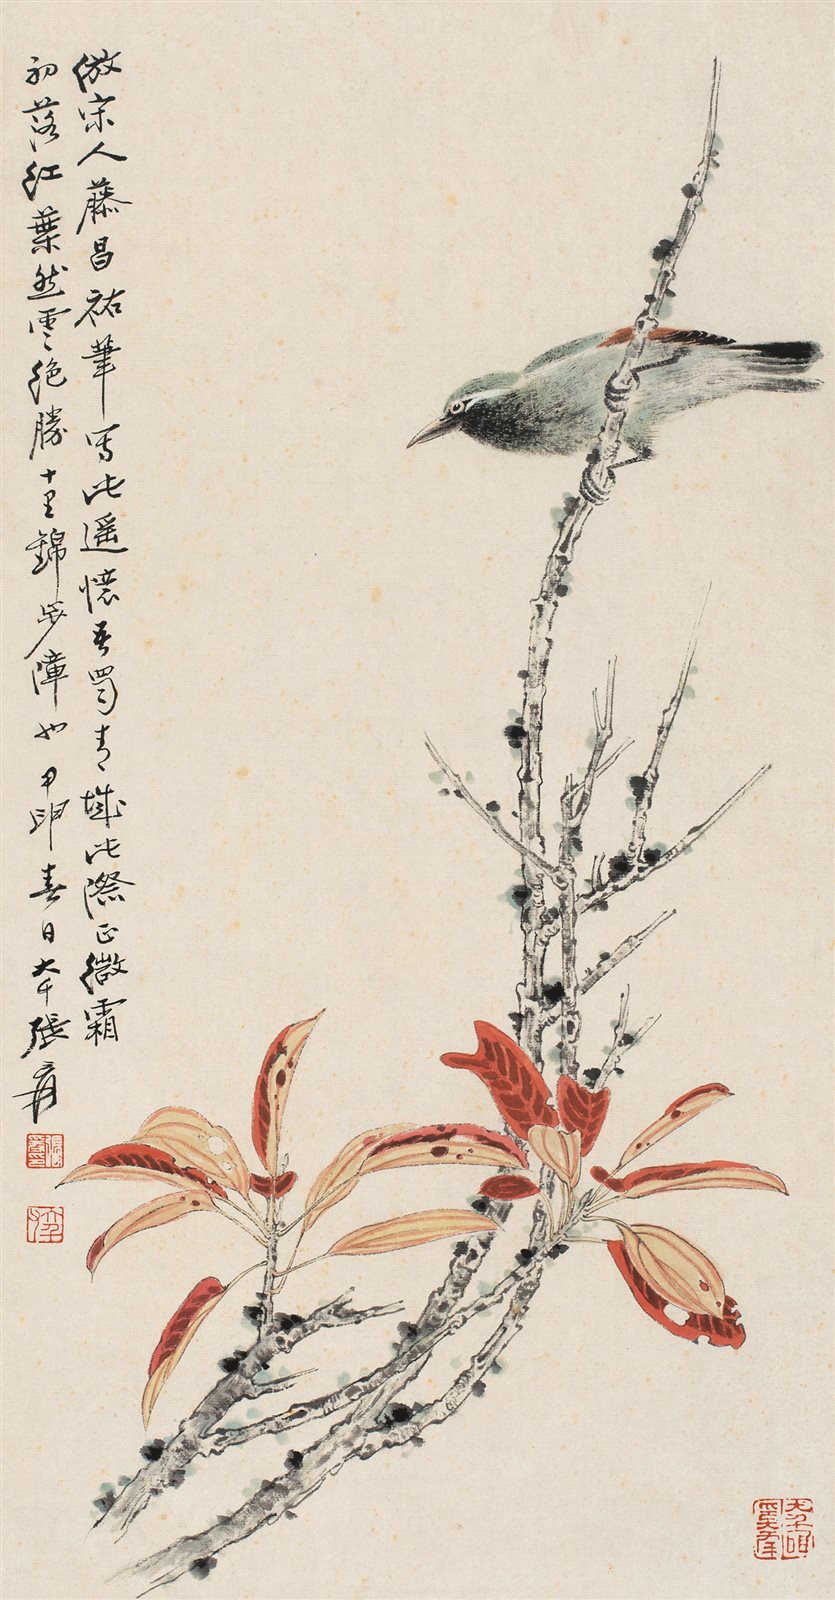 倣宋人藤昌祐筆寫此遥懷吾蜀青城此際正微霜
初落紅葉然雲絕勝十里錦步障也甲申春日大千張爰